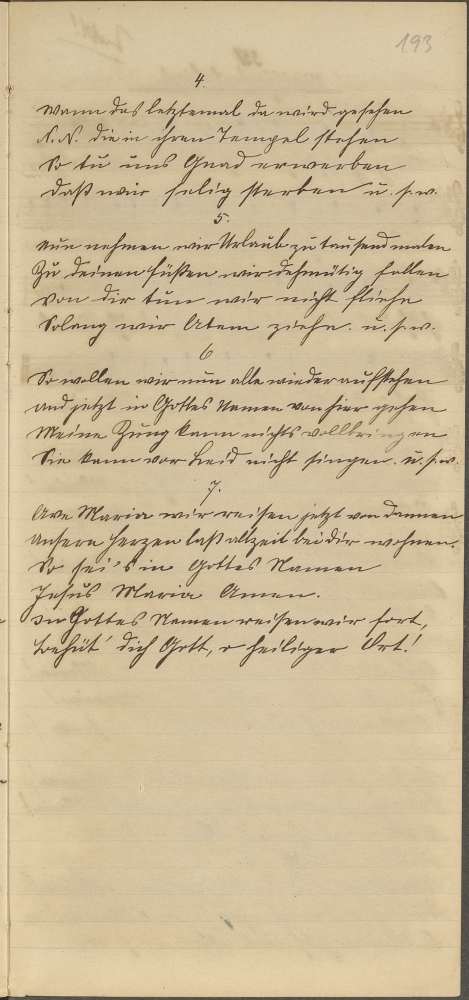 193
4.
Wann das letztemal da wird gesehen
N. N. die in ihren Tempel stehen
So tu uns Gnad erwerben
Daß wir selig sterben u. s. w.
5.
Nun nehmen wir Urlaub zu tausendmalen
Zu deinen Füßen wir dehmütig fallen
Von dir tun wir nicht fliehn
Solang wir Atem ziehn. u. s. w.
6
So wollen wir nun alle wieder aufstehen
und jetzt in Gottes Namen von hier gehen
Meine Zung kann nichts vollbringen
Sie kann vor Leid nicht singen. u. s. w.
7.
Ave Maria wir reisen jetzt von dannen
Unsere Herzen laß allzeit bei dir wohnen.
So sei's in Gottes Namen
Jesus Maria Amen.
In Gottes Namen reisen wir fort,
Behüt' dich Gott, o heiliger Ort!